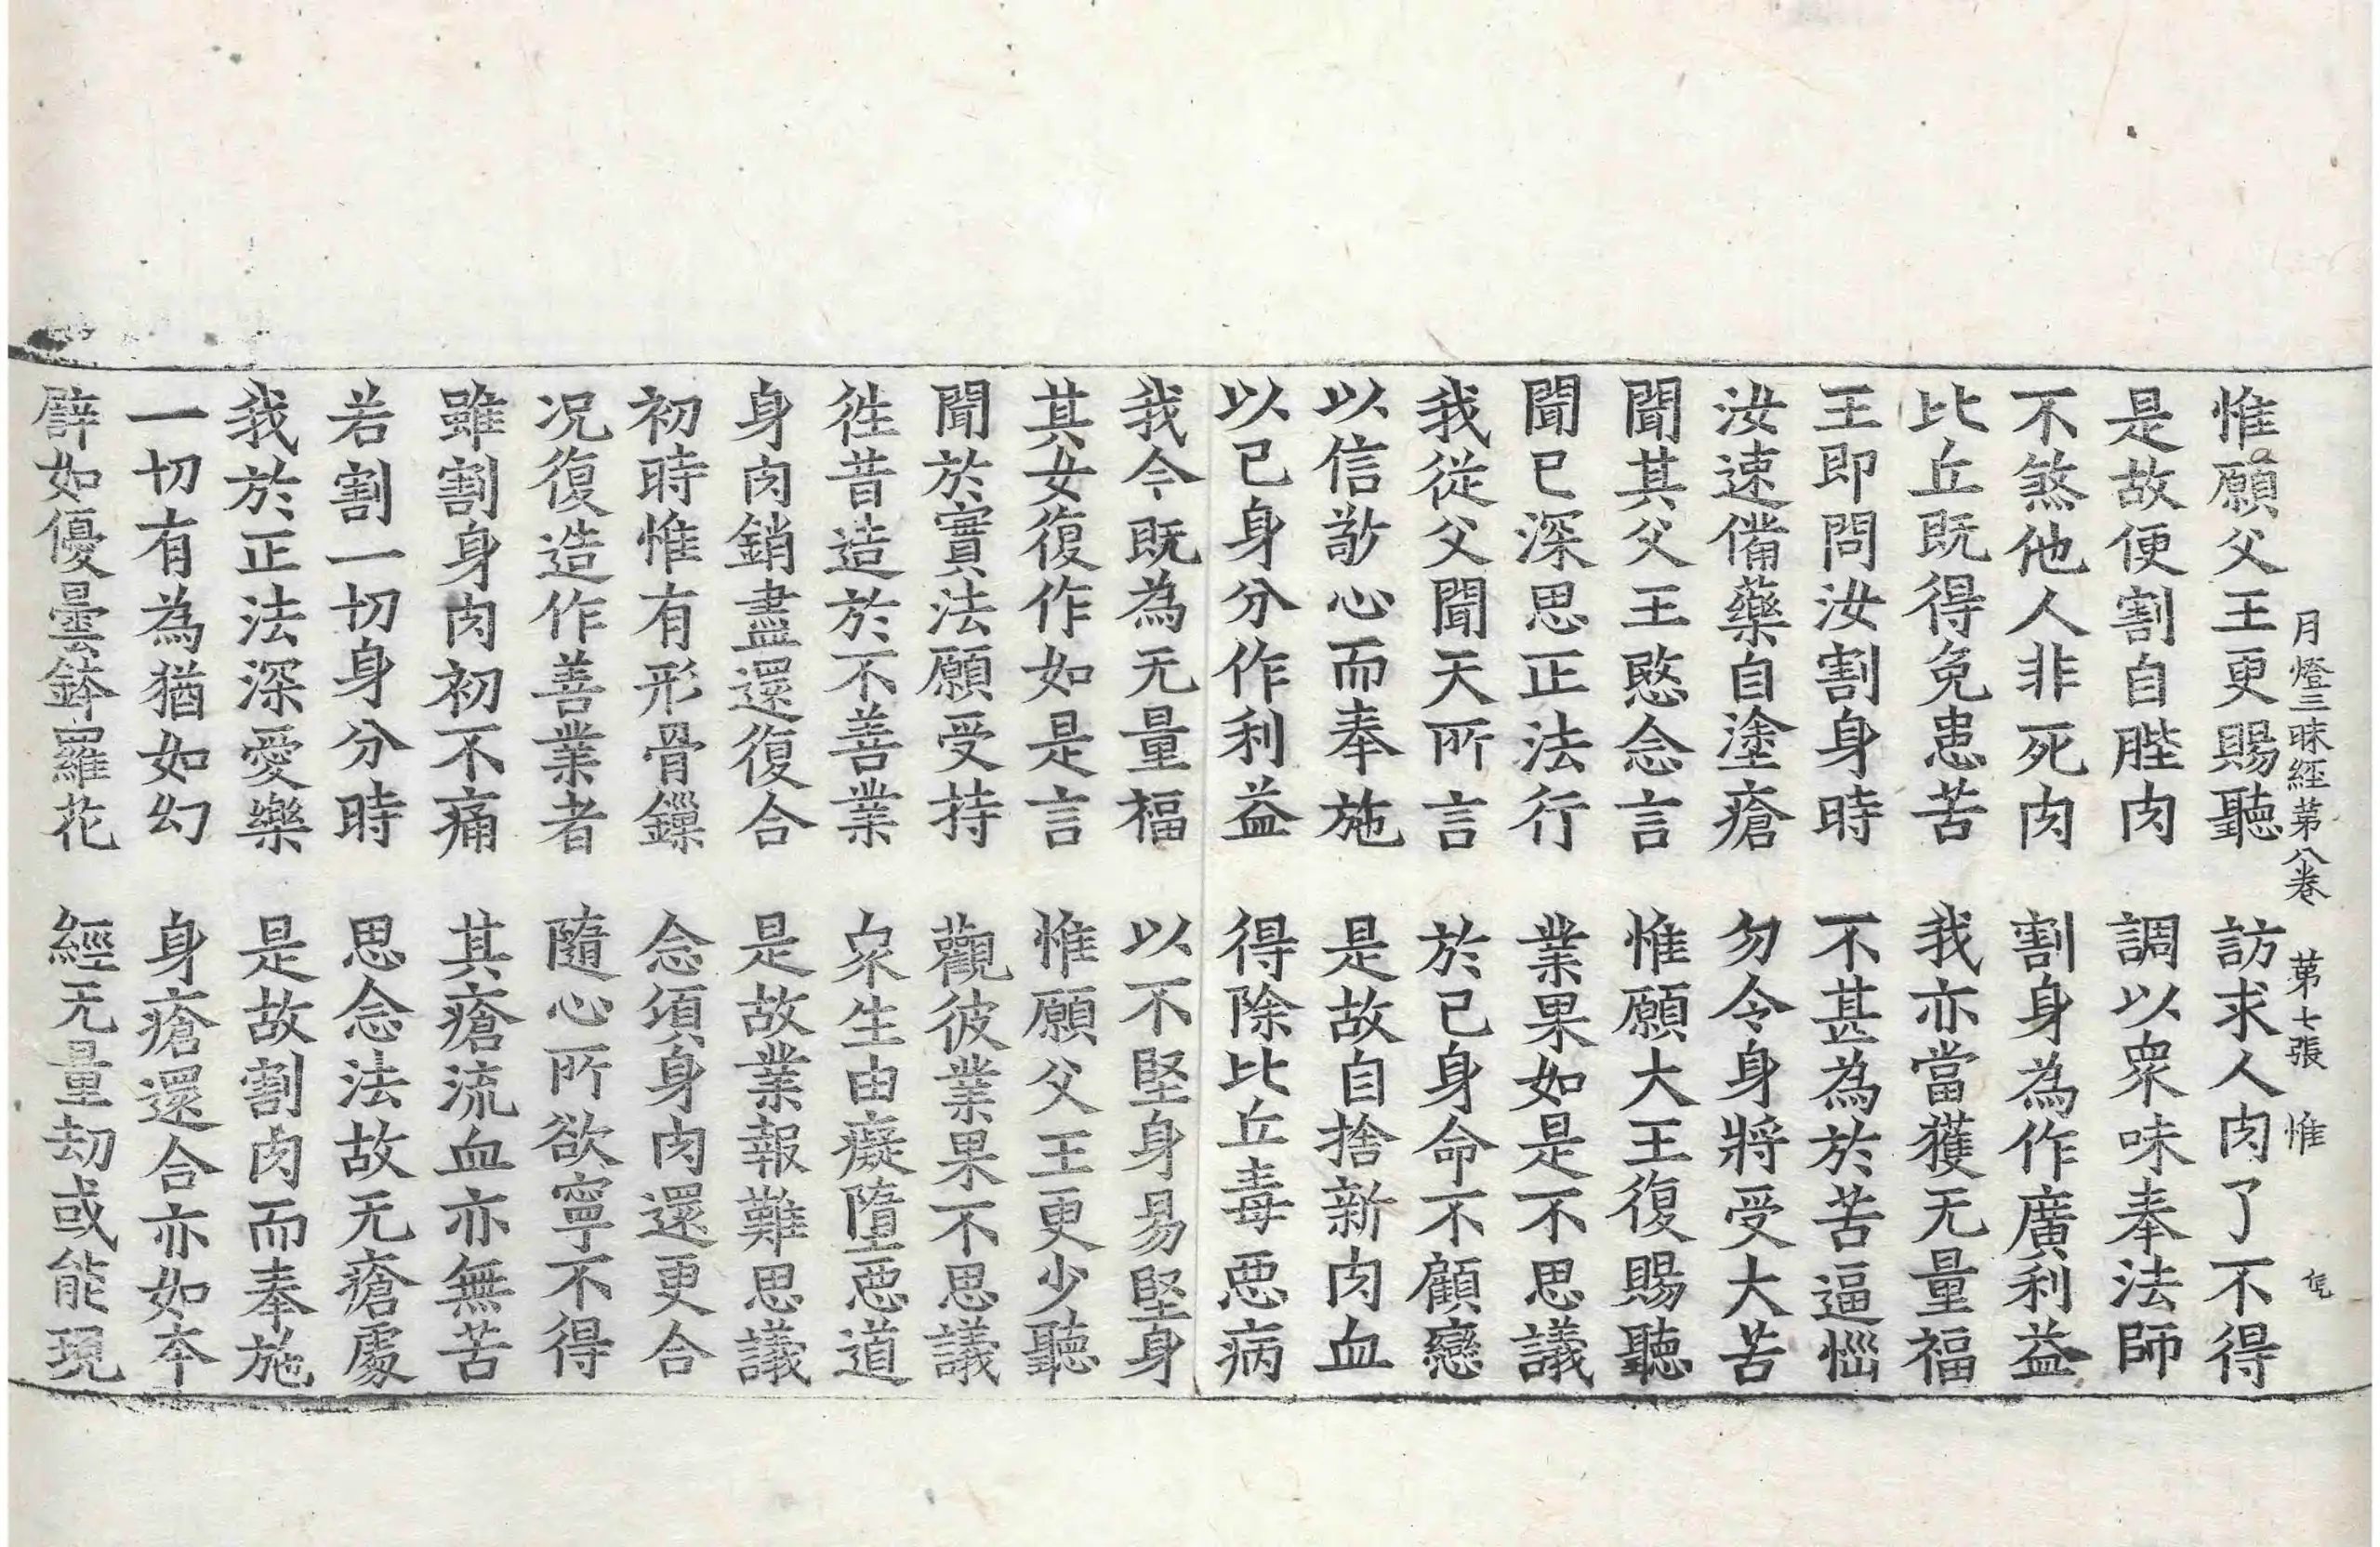 月燈三昧經第八卷　第七張　惟
惟願父王更賜聽　訪求人肉了不得
是故便割自䏶肉　調以衆味奉法師
不煞他人非死肉　割身為作廣利益
比丘既得免患苦　我亦當獲无量福
王即問汝割身時　不甚為於苦逼惱
汝速備藥自塗瘡　勿令身將受大苦
聞其父王愍念言　惟願大王復賜聽
聞已深思正法行　業果如是不思議
我從父聞天所言　於己身命不顧戀
以信敬心而奉施　是故自捨新肉血
以己身分作利益　得除比丘毒惡病
我今既為无量福　以不堅身易堅身
其女復作如是言　惟願父王更少聽
聞於實法願受持　觀彼業果不思議
徃昔造於不善業　衆生由癡墮惡道
身肉銷盡還復合　是故業報難思議
初時惟有形骨鏁　念須身肉還更合
况復造作善業者　隨心所欲寧不得
雖割身肉初不痛　其瘡流血亦無苦
若割一切身分時　思念法故无瘡處
我於正法深愛樂　是故割肉而奉施
一切有為猶如幻　身瘡還合亦如本
譬如優曇鉢羅花　經无量劫或能現